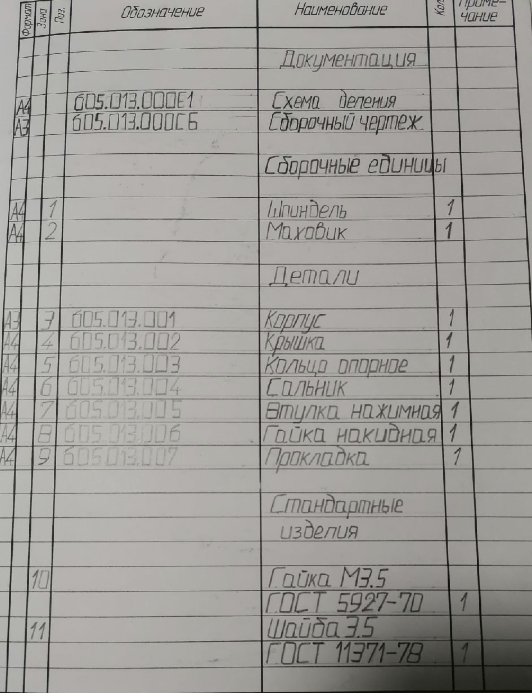 Формат Зона Поз. Обозначение Наименование Кол. Приме-
чание
Документация
А4 605.013.000Е1 Схема деления
А3 605.013.000СБ Сборочный чертеж
Сборочные единицы
А4 1 Шпиндель 1
А4 2 Маховик 1
Детали
А3 3 605.013.001 Корпус 1
А4 4 605.013.002 Крышка 1
А4 5 605.013.003 Кольцо опорное 1
А4 6 605.013.004 Сальник 1
А4 7 605.013.005 Втулка нажимная 1
А4 8 605.013.006 Гайка накидная 1
А4 9 605.013.007 Прокладка 1
Стандартные
изделия
10 Гайка М3.5
ГОСТ 5927-70 1
11 Шайба 3.5
ГОСТ 11371-78 1